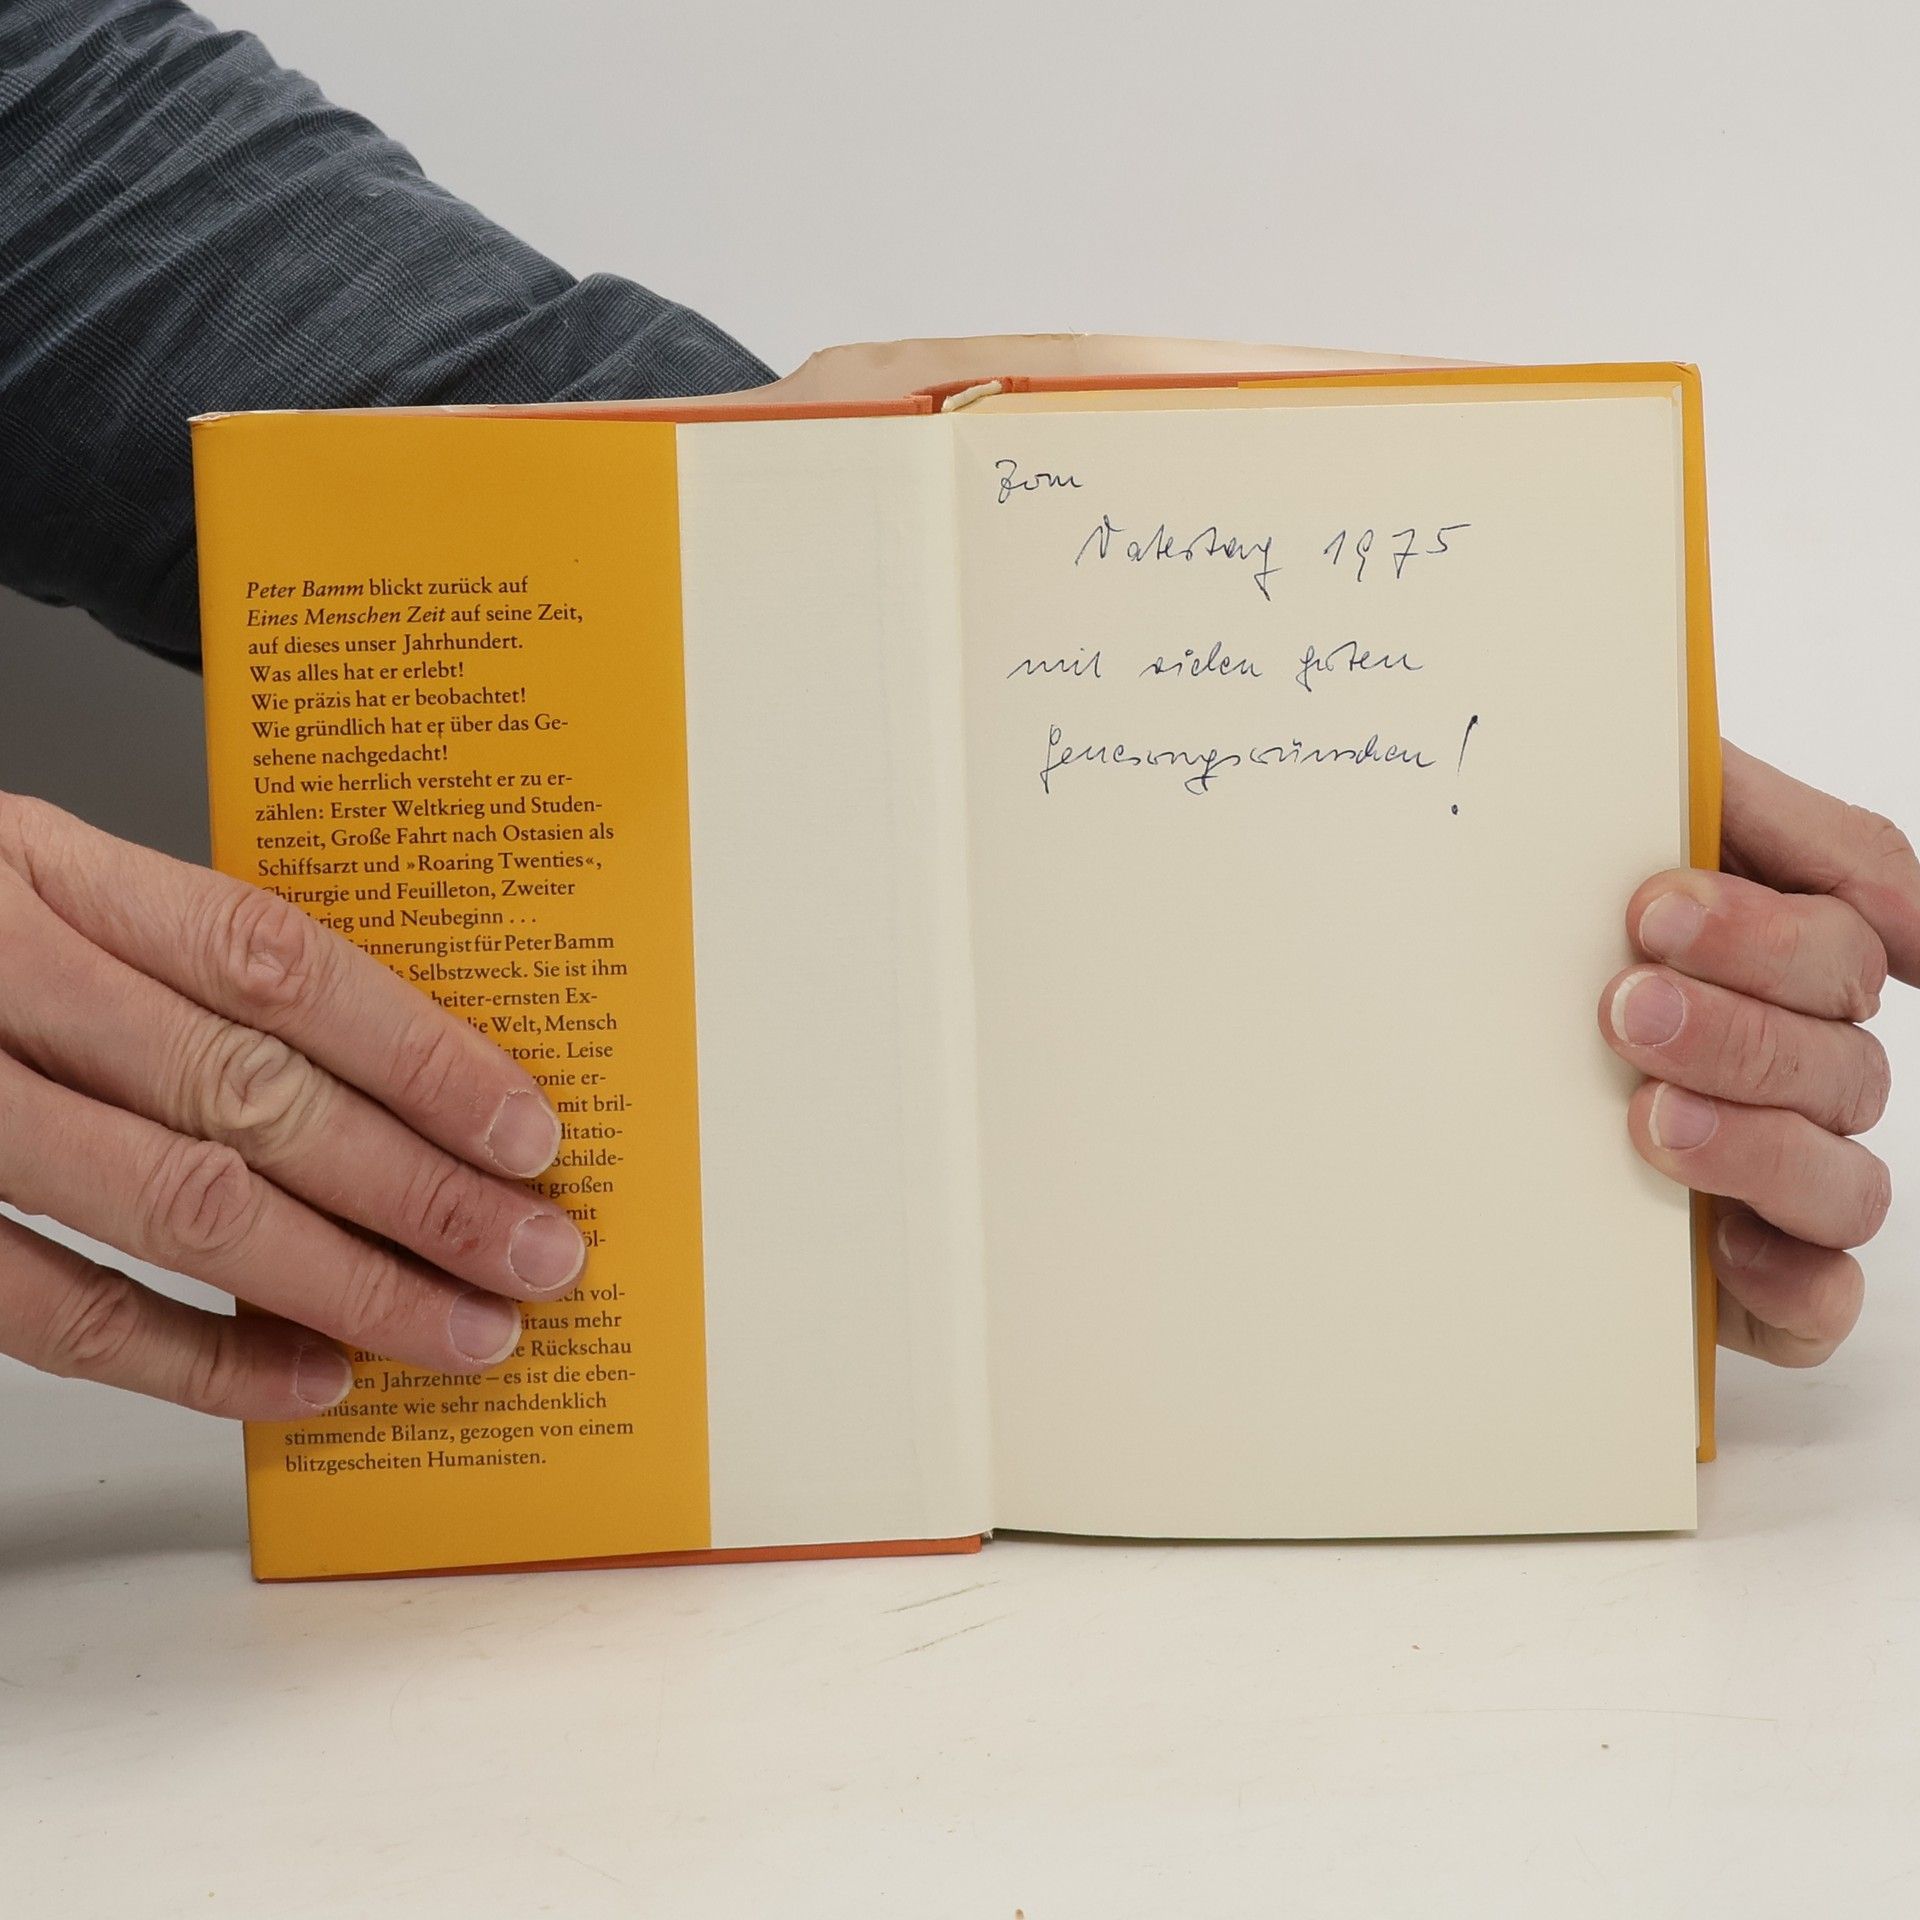 Peter Bamm blickt zurück auf
Eines Menschen Zeit auf seine Zeit,
auf dieses unser Jahrhundert.
Was alles hat er erlebt!
Wie präzis hat er beobachtet!
Wie gründlich hat er über das Ge-
sehene nachgedacht!
Und wie herrlich versteht er zu er-
zählen: Erster Weltkrieg und Studen-
tenzeit, Große Fahrt nach Ostasien als
Schiffsarzt und »Roaring Twenties«,
Chirurgie und Feuilleton, Zweiter
krieg und Neubeginn ...
rinnerung ist für Peter Bamm
ls Selbstzweck. Sie ist ihm
heiter-ernsten Ex-
die Welt, Mensch
storie. Leise
ronie er-
mit bril-
ditatio-
Schilde-
it großen
mit
öl-
ch vol-
eitaus mehr
aut e Rückschau
en Jahrzehnte – es ist die eben-
müsante wie sehr nachdenklich
stimmende Bilanz, gezogen von einem
blitzgescheiten Humanisten.
Zum
Vatertag 1975
mit vielen guten
Genesungswünschen!